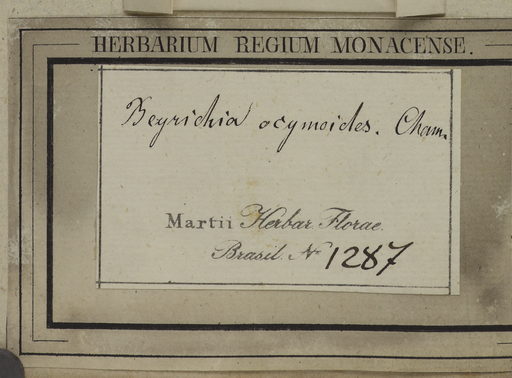 HERBARIUM REGIUM MONACENSE.
Beyrichia ocymoides. Cham.
Martii Herbar. Florae.
Brasil. No 1287